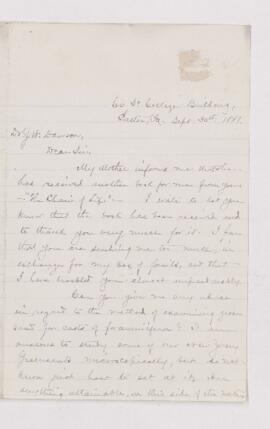 College Building,
Easton, Pa. Sept. 30th, 1881.
Dr J. W. Dawson,
Dear Sir,
My Mother informs me
has received another book for me from you
"The Chain of Life" I write to let you
know that the book has been received and
to thank you very much for it. I fear
that you are sending me too much in
exchange for my box of fossils, and that
I have troubled you almost unpardonably.
Can you give me any advice
in regard to the method of examining green
sand for casts of foraminifera? I am
anxious to study some of our New Jersey
Greensands microscopically, but do not
know just how to set at it. Is
anything attainable, on this side of the